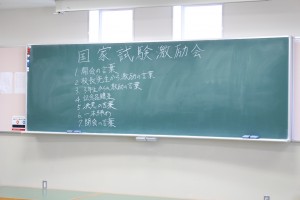 国家試験激励会
1. 開会の言葉
2. 校長先生から激励の言葉
3. 在校生からの激励の言葉
4.
5. 決意の言葉
6. 一本締め
7. 閉会の言葉